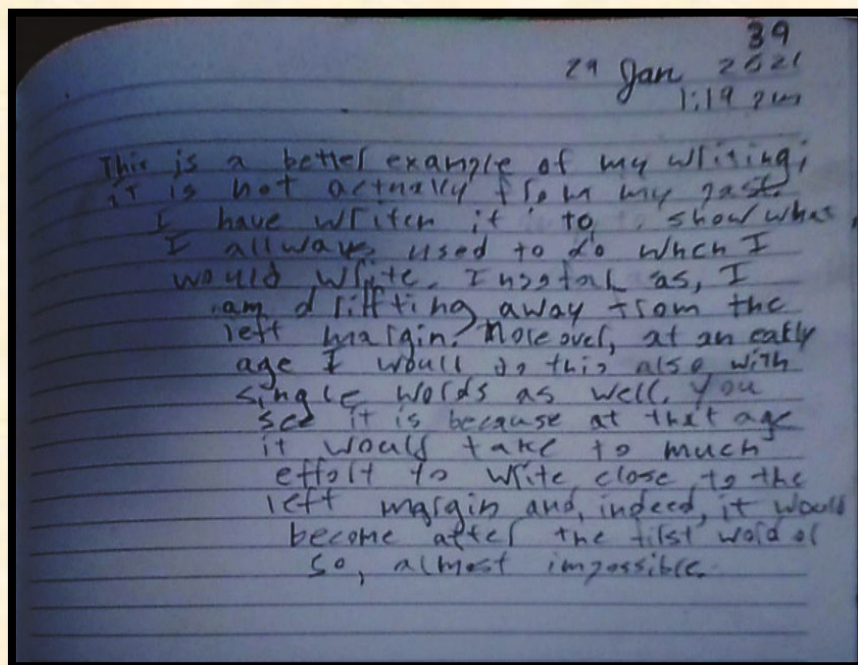 39
29 Jan 2021
1:19 pm
This is a better example of my writing;
it is not actually from my past.
I have writen it to show what
I allways used to do when I
would write. Insofar as, I
am driffting away from the
left margin. Moreover, at an early
age I would do this also with
single words as well. You
see it is because at that age
it would take to much
effort to write close to the
left margin and, indeed, it would
become after the first word or
so, almost impossible.